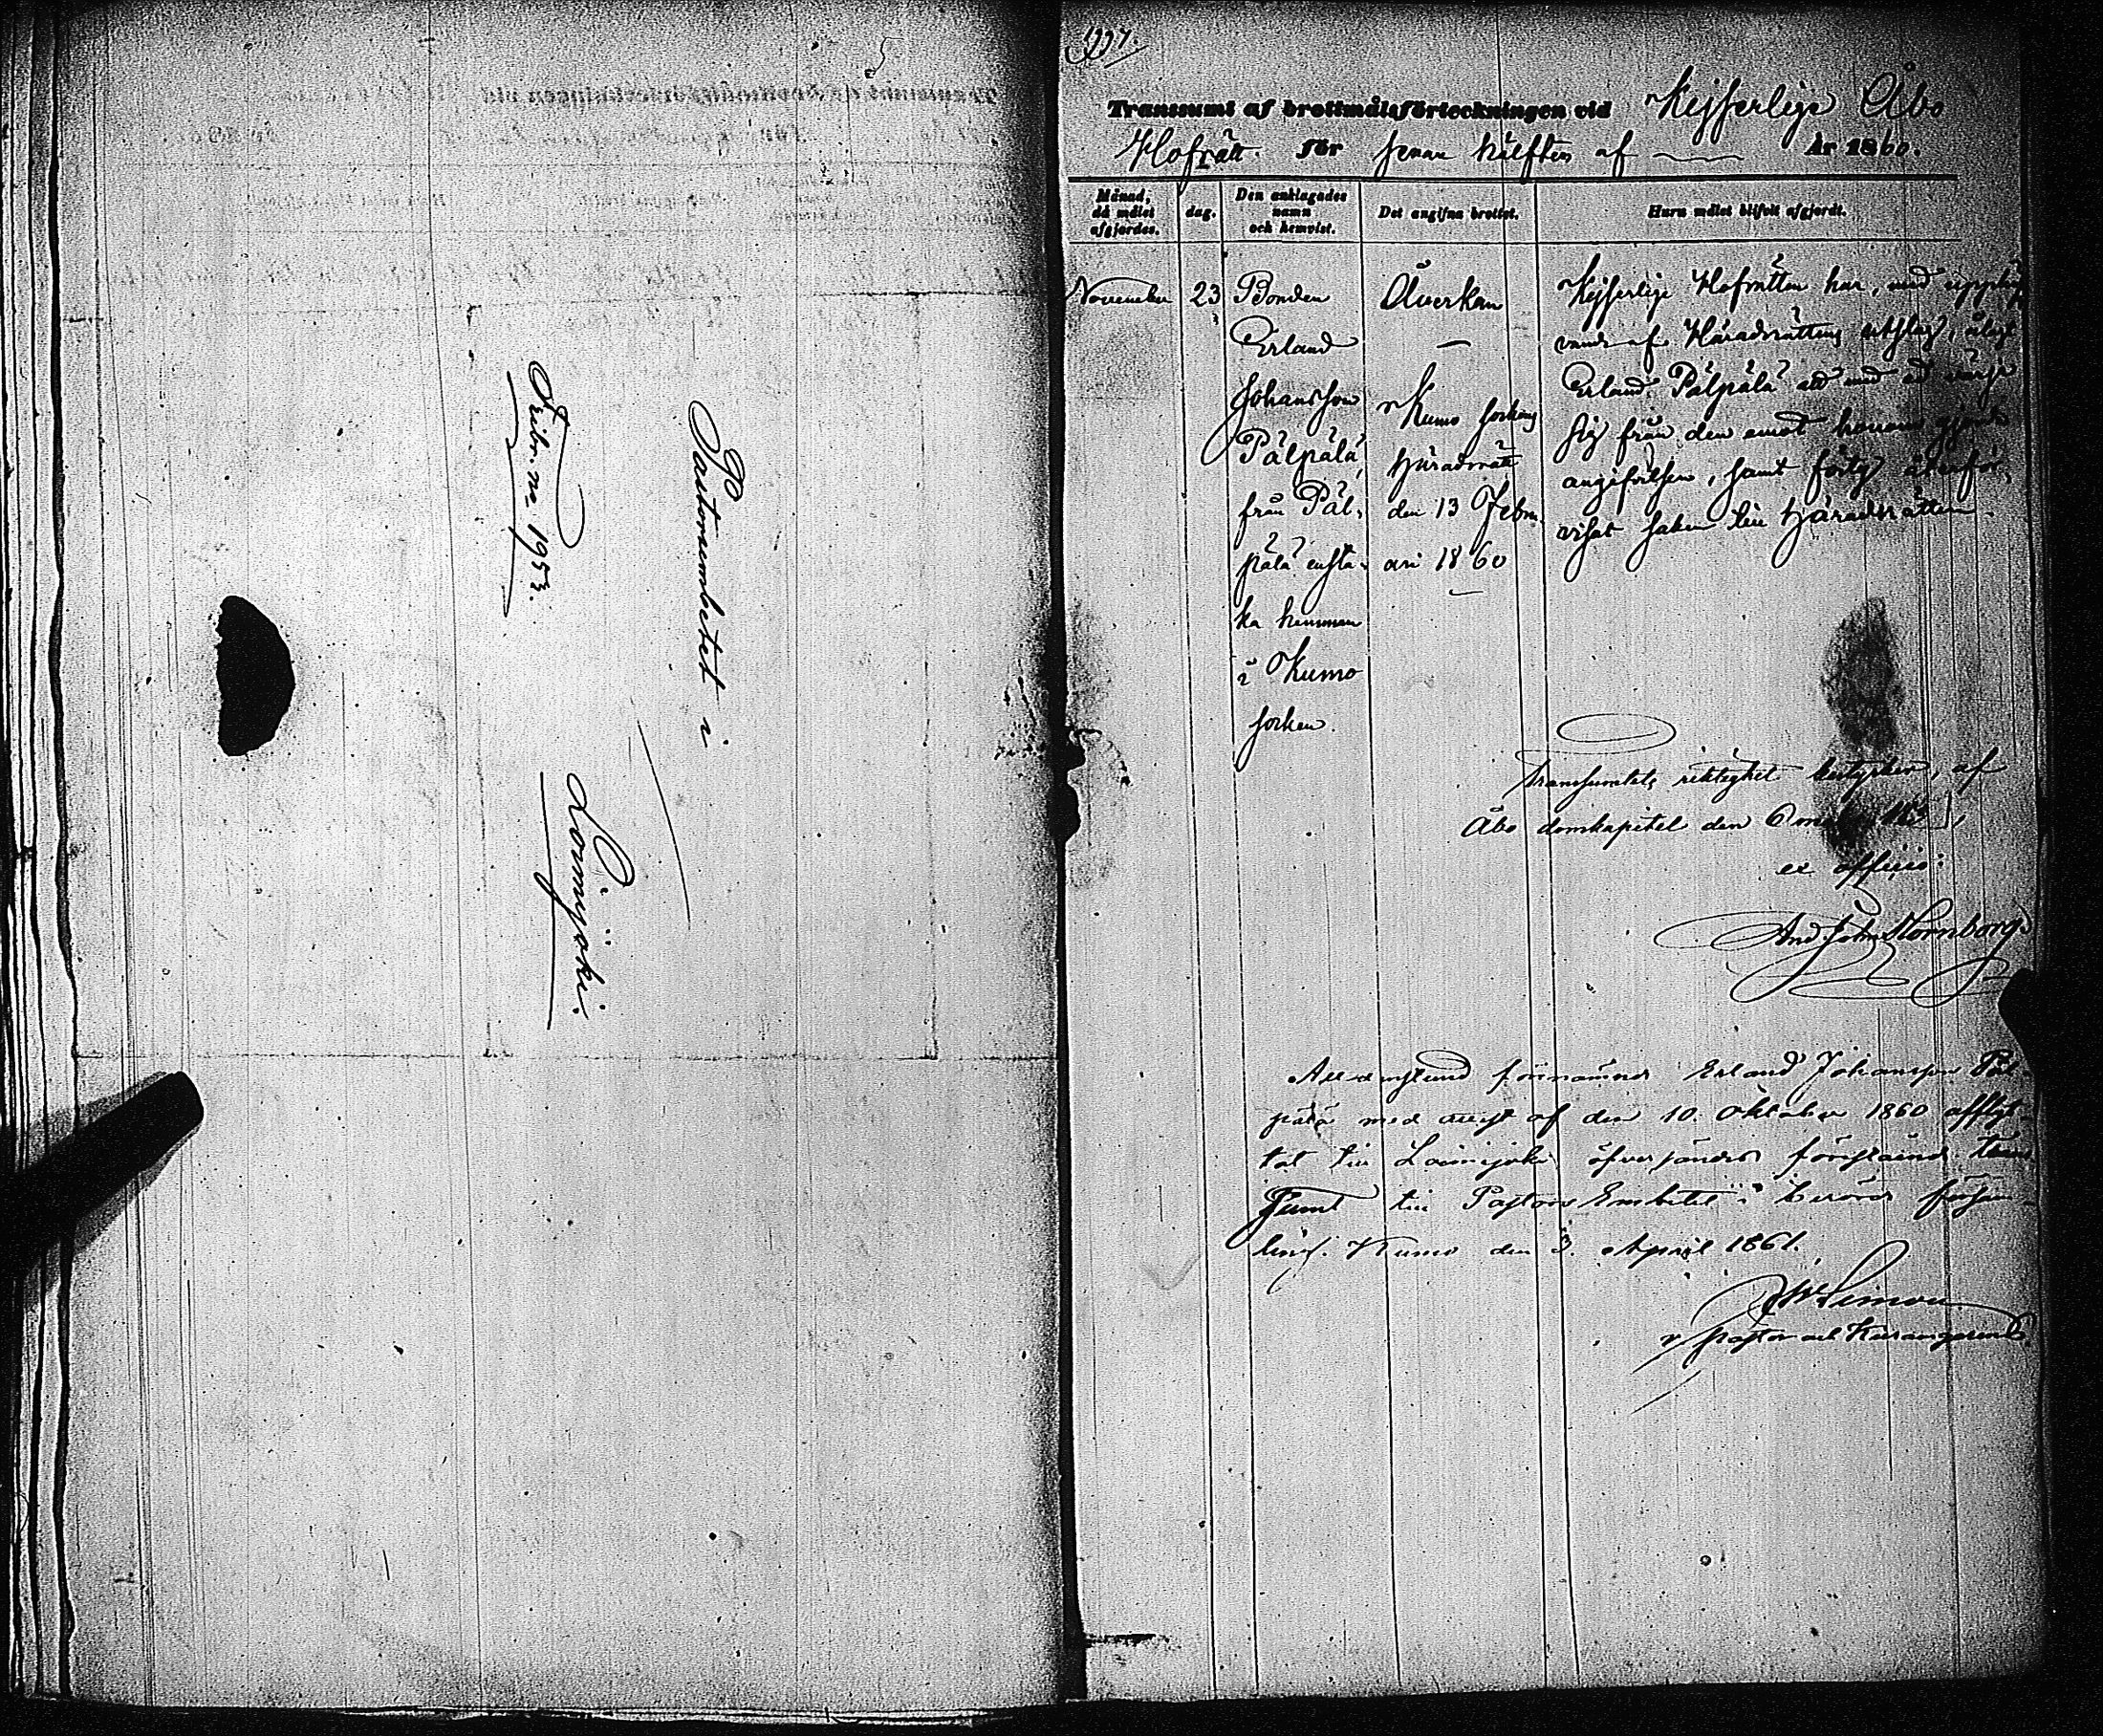 Pastorsembetet i
Loimijoki.
Fribr. no 1953.
Transsumt af brottmålsförteckningen vid Kejserlige Åbo
Hofrätt för senare hälften af År 1860.
Månad, då målet afgjordes.
dag.
Den anklagades namn och hemvist.
Det angifna brottet.
Huru målet blifvit afgjordt.
November 23
Bonden
Erland
Johansson
Pälpälä,
från Päl-
pälä ensta-
ka hemman
i Kumo
socken.
Åverkan
Kumo sockens
Häradsrätt
den 13 Febru-
ari 1860
Kejserlige Hofrätten har, med upphäf-
vande af Häradsrättens utslag, ålagt
Erland Pälpälä att med ed värja
sig från den emot honom gjorda
angifvelsen, samt förty återför-
visat saken till Häradsrätten.
Transsumtets riktighet bestyrker, af
Åbo domkapitel den 6
ex officio:
And. Joh. Hornborg.
förnämnde Erland Johansson Päl-
pälä med attest af den 10. Oktober 1860 afflyt-
tat till Loimijoki öfversändes förestående Trans-
sumt till Pastors Embetet i berörde försam-
ling. Kumo den 3. April 1861.
v. pastor